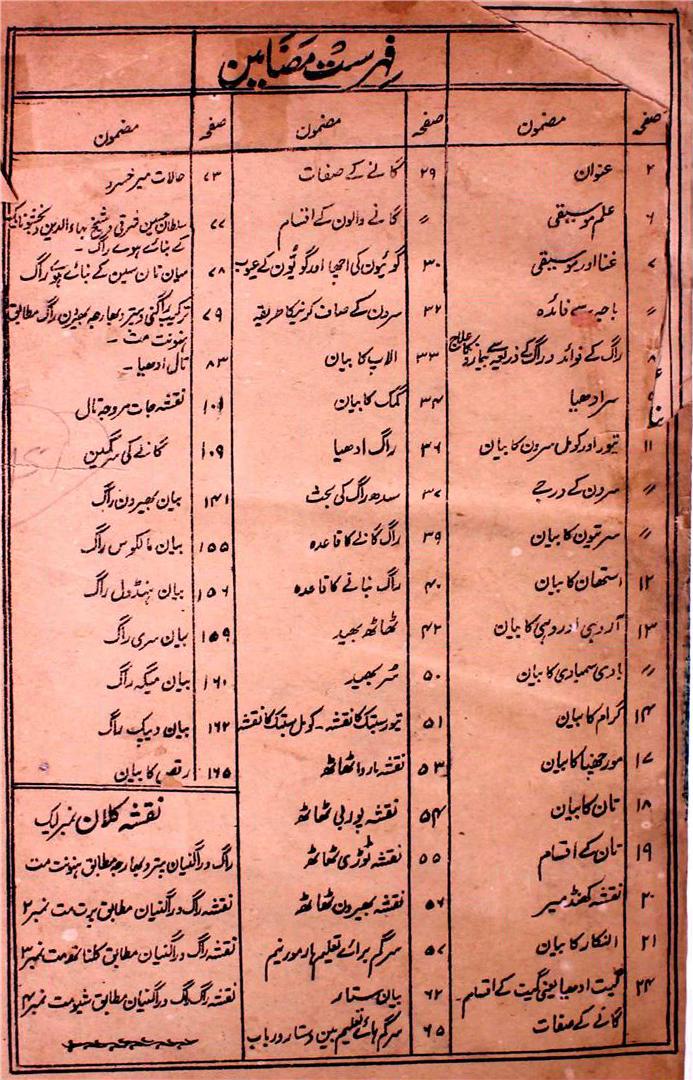 فہرست مضامین
صفحہ مضمون
۲ عنوان
۶ علم موسیقی
۷ غنا اور موسیقی
〃 باجہ سے فائدہ
۸ راگ کے فوائد و راگ کے ذریعہ سے بیمار کا علاج
۹ سر ادھیا
۱۱ تیور اور کومل سرون کا بیان
〃 سرون کے درجے
〃 سرتیون کا بیان
۱۲ استھان کا بیان
۱۳ آروہی اور دہی کا بیان
〃 بادی سمبادی کا بیان
۱۴ گرام کا بیان
۱۷ مورچھنا کا بیان
۱۸ تان کا بیان
۱۹ تان کے اقسام
۲۰ نقشہ کھنڈ میر
۲۱ النکار کا بیان
۲۴ گیت ادھیا یعنی گیت کے اقسام۔
گانے کے صفات
صفحہ مضمون
۲۹ گانے کے صفات
〃 گانے والون کے اقسام
۳۰ گویئون کی اچھا اور گویئون کے عیوب
۳۲ سرون کے صاف کرنیکا طریقہ
۳۳ الاپ کا بیان
۳۴ گمک کا بیان
۳۶ راگ ادھیا
۳۷ سدھ راگ کی بحث
۳۹ راگ گانے کا قاعدہ
۴۰ راگ بنانے کا قاعدہ
۴۲ ٹھاٹھ بھید
۵۰ سُر بھید
۵۱ تیور سپتک کا نقشہ۔ کومل سپتک کا نقشہ
۵۳ نقشہ ماروا ٹھاٹھ
۵۴ نقشہ پوربی ٹھاٹھ
۵۵ نقشہ ٹوڑی ٹھاٹھ
۵۶ نقشہ بھیرون ٹھاٹھ
۵۷ سرگم برائے تعلیم ہارمونیم
۶۲ بیان ستار
۶۵ سرگم ہائے تعلیم بین و ستار و رباب
صفحہ مضمون
۷۳ حالات میر خسرو
۷۷ سلطان حسین شرقی و شیخ بہاءالدین و بخشو نایک
کے بنائے ہوے راگ۔
۷۸ میان تان سین کے بنائے ہوے راگ
۷۹ ترکیب راگنی و پتر و بھارجہ بھیرون راگ مطابق
ہنونت مت۔
۸۳ تال ادھیا۔
۱۰۱ نقشہ جات مروجہ تال
۱۰۹ گانے کی سرگمین
۱۴۱ بیان بھیرون راگ
۱۵۵ بیان مالکوس راگ
۱۵۶ بیان ہنڈول راگ
۱۵۹ بیان سری راگ
۱۶۰ بیان میگھ راگ
۱۶۲ بیان دیپک راگ
۱۶۵ رقص کا بیان
نقشہ کلان نمبر ایک
راگ و راگنیان پتر و بھارجہ مطابق ہنونت مت
نقشہ راگ و راگنیان مطابق برت مت نمبر ۲
نقشہ راگ و راگنیان مطابق کلناتھ مت نمبر ۳
نقشہ راگ و راگنیان مطابق شیو مت نمبر ۴